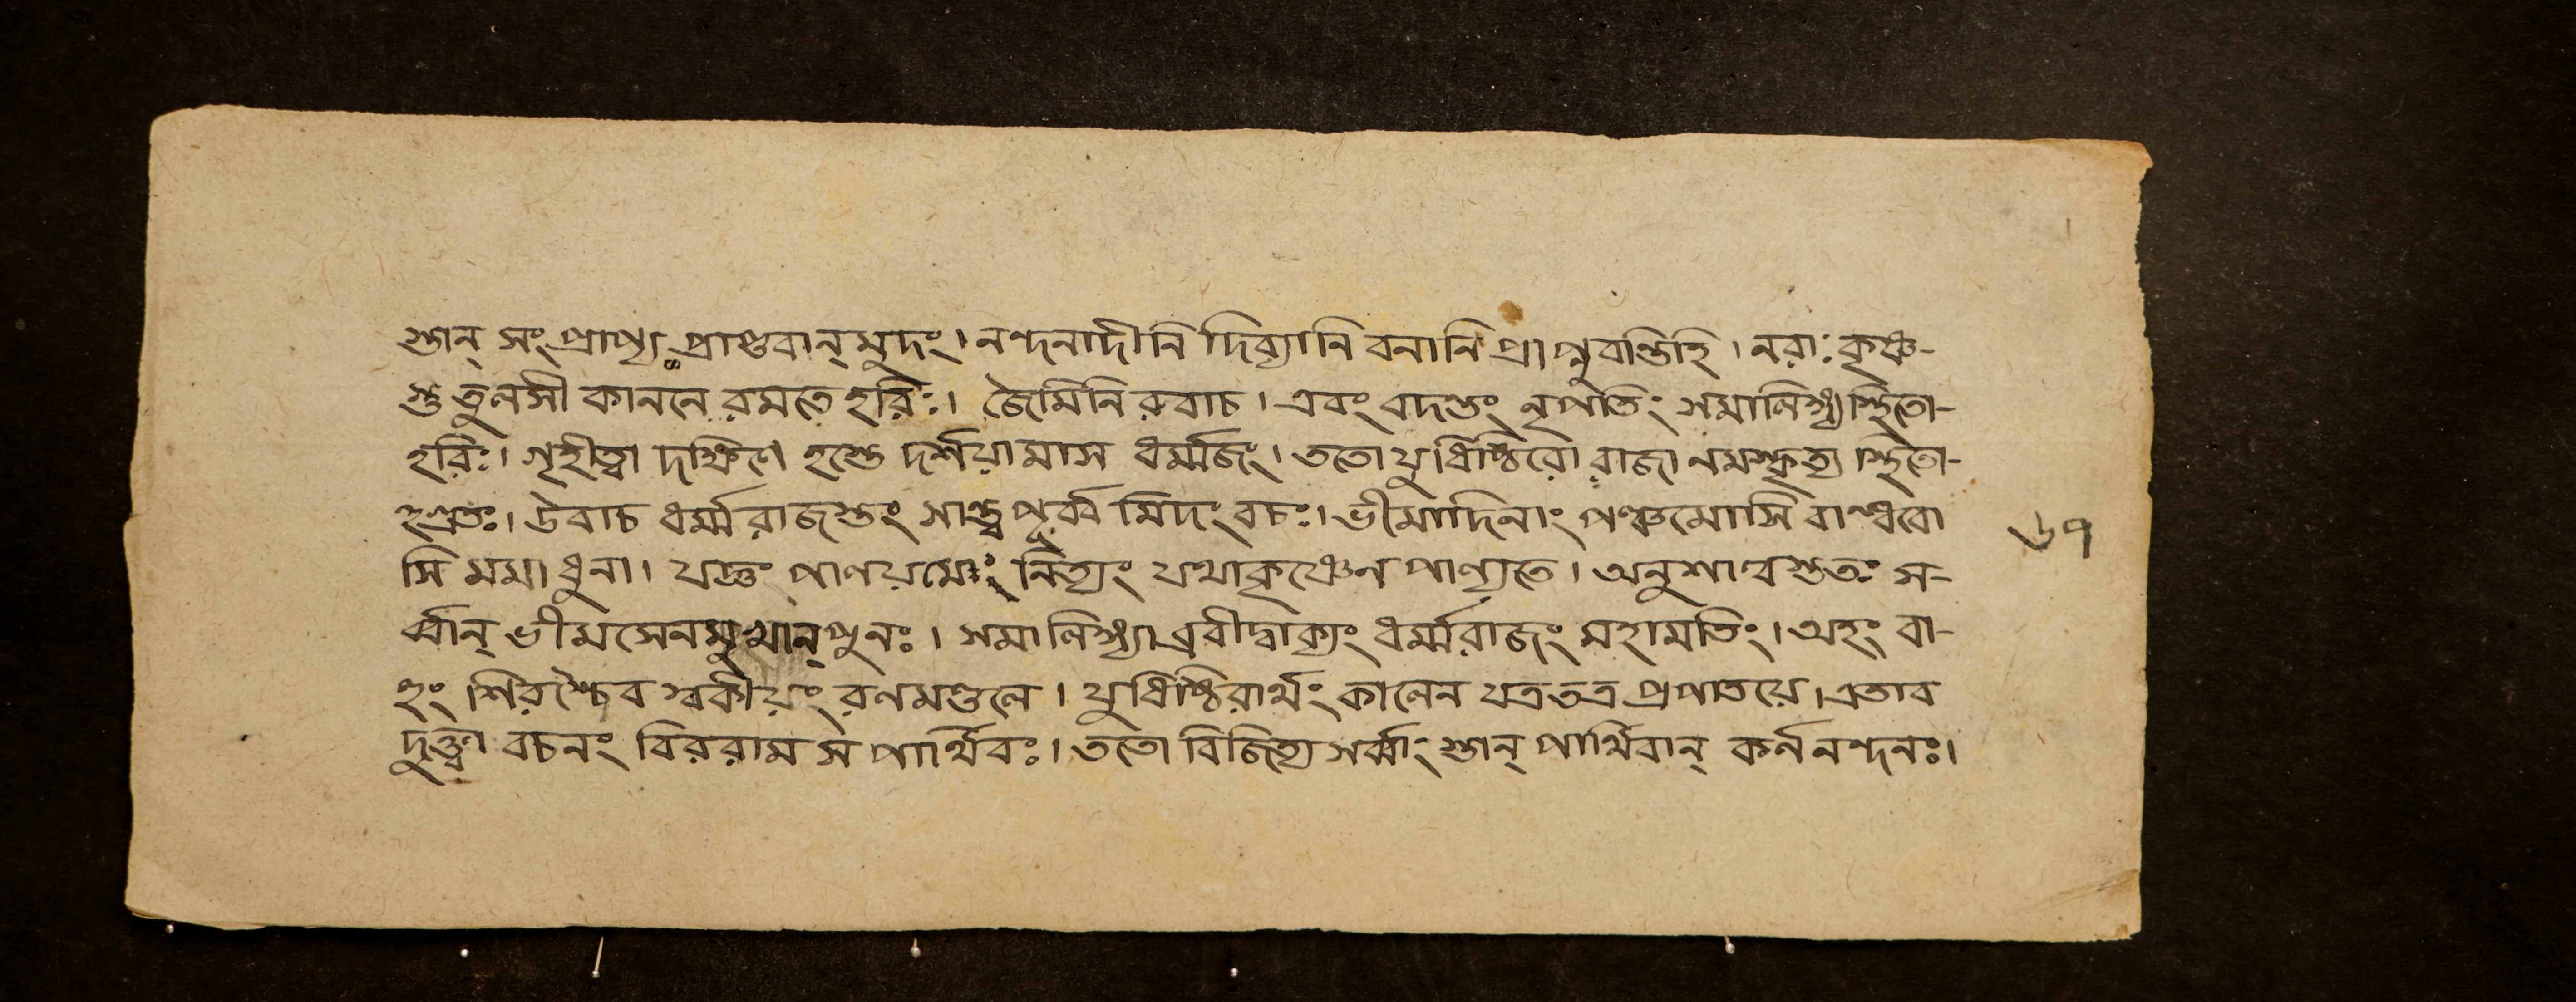 স্তান্ সংপ্রাপ্য প্রাপ্তবান্ মুদং। নন্দনাদীনি দিব্যানি বনানি প্রাপ্নুবন্তিহি। নরাঃ কৃষ্ণ-
স্তু তুলসী কাননে রমতে হরিঃ। জৈমিনি রুবাচ। এবং বদন্তং নৃপতিং সমালিঙ্গ্য স্থিতো-
হরিঃ। গৃহীত্বা দক্ষিণে হস্তে দর্শয়ামাস ধর্ম্মজং। ততো যুধিষ্ঠিরো রাজা নমস্কৃত্য স্থিতো-
হগ্রতঃ। উবাচ ধর্ম্মরাজস্তং সান্ত্বপূর্ব্ব মিদং বচঃ। ভীমাদিনাং পঞ্চমোসি বান্ধবো
সি মমাধুনা। যত্তং পালয়মেং নিত্যং যথাকৃষ্ণেন পাল্যতে। অনুশাধ্বস্তুতঃ স-
র্ব্বান্ ভীমসেনমুখান্ পুনঃ। সমালিঙ্গ্যাব্রবীদ্বাক্যং ধর্ম্মরাজং মহামতিং। অহং বা-
হুং শিরশ্চৈব স্বকীয়ং রণমণ্ডলে। যুধিষ্ঠিরার্থং কালেন যত্রতত্র প্রপাতয়ে। এতাব
দুক্ত্বা বচনং বিররাম স পার্থিবঃ। ততো বিজিত্য সর্ব্বাংস্তান্ পার্থিবান্ কর্ননন্দনঃ।
৬৭